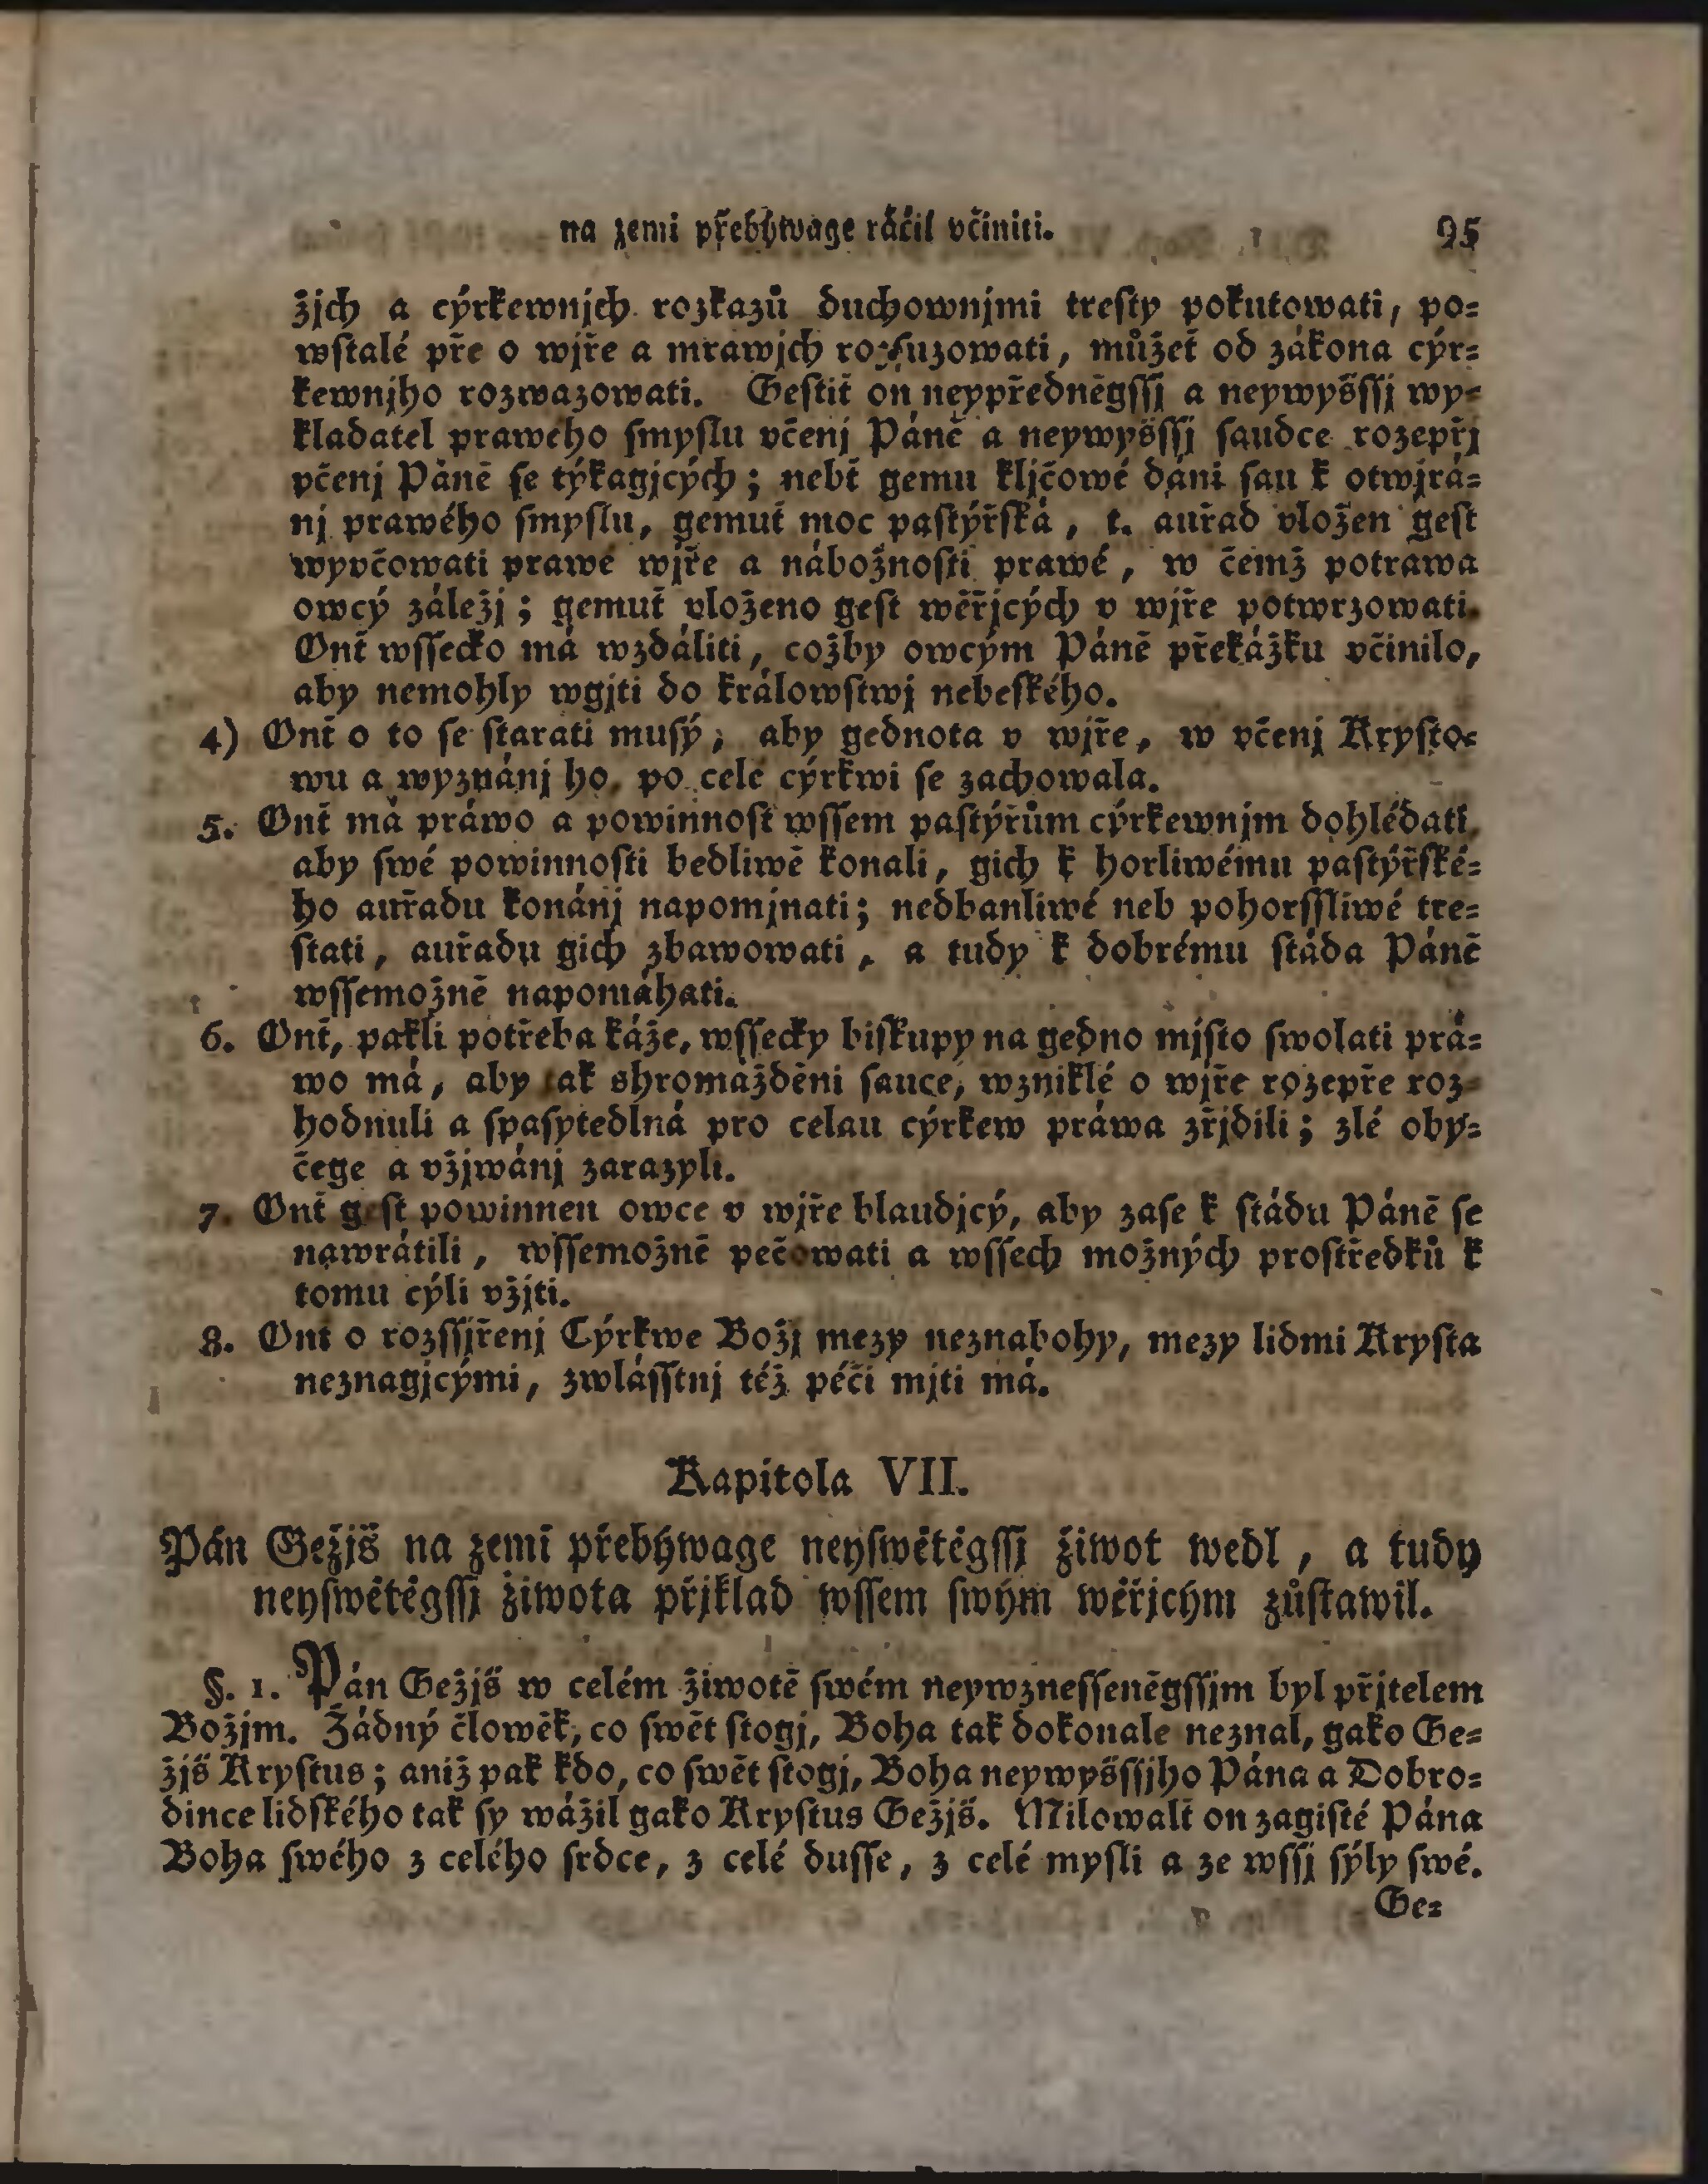 na zemi přebýwage ráčil včiniti. 95
žjch a cýrkewnjch rozkazů duchownjmi treſty pokutowati, po=
wſtalé pře o wjře a mrawjch rozſuzowati, můžeť od zákona cýr=
kewnjho rozwazowati. Geſtiť on neypředněgſſj a neywyšſſj wy=
kladatel prawého ſmyſlu včenj Páně a neywyšſſj ſaudce rozepřj
včenj Páně ſe týkagjcých; nebť gemu kljčowé dáni ſau k otwjrá=
nj prawého ſmyſlu, gemuť moc paſtýřſká, t. auřad vložen geſt
wyvčowati prawé wjře a nábožnoſti prawé, w čemž potrawa
owcý záležj; gemuť vloženo geſt wěřjcých v wjře potwrzowati.
Onť wſſecko má wzdáliti, cožby owcým Páně překážku včinilo,
aby nemohly wgjti do králowſtwj nebeſkého.
4) Onť o to ſe ſtarati muſý, aby gednota v wjře, w včenj Kryſto=
wu a wyznánj ho, po celé cýrkwi ſe zachowala.
5. Onť má práwo a powinnoſt wſſem paſtýřům cýrkewnjm dohlédati,
aby ſwé powinnoſti bedliwě konali, gich k horliwému paſtýřſké=
ho auřadu konánj napomjnati; nedbanliwé neb pohorſſliwé tre=
ſtati, auřadu gich zbawowati, a tudy k dobrému ſtáda Páně
wſſemožně napomáhati.
6. Onť, pakli potřeba káže, wſſecky biſkupy na gedno mjſto ſwolati prá=
wo má, aby tak shromážděni ſauce, wzniklé o wjře rozepře roz=
hodnuli a ſpaſytedlná pro celau cýrkew práwa zřjdili; zlé oby=
čege a vžjwánj zarazyli.
7. Onť geſt powinnen owce v wjře blaudjcý, aby zaſe k ſtádu Páně ſe
nawrátili, wſſemožně pečowati a wſſech možných proſtředků k
tomu cýli vžjti.
8. Onť o rozſſjřenj Cýrkwe Božj mezy neznabohy, mezy lidmi Kryſta
neznagjcými, zwláſſtnj též péči mjti má.
Kapitola VII.
Pán Gežjš na zemi přebýwage neyſwětěgſſj žiwot wedl, a tudy
neyſwětěgſſj žiwota přjklad wſſem ſwým wěřjcým zůſtawil.
§. 1. Pán Gežjš w celém žiwotě ſwém neywzneſſeněgſſjm byl přjtelem
Božjm. Žádný člowěk, co ſwět ſtogj, Boha tak dokonale neznal, gako Ge=
žjš Kryſtus; aniž pak kdo, co ſwět ſtogj, Boha neywyšſſjho Pána a Dobro=
dince lidſkého tak ſy wážil gako Kryſtus Gežjš. Milowalť on zagiſté Pána
Boha ſwého z celého ſrdce, z celé duſſe, z celé myſli a ze wſſj ſýly ſwé.
Ge=